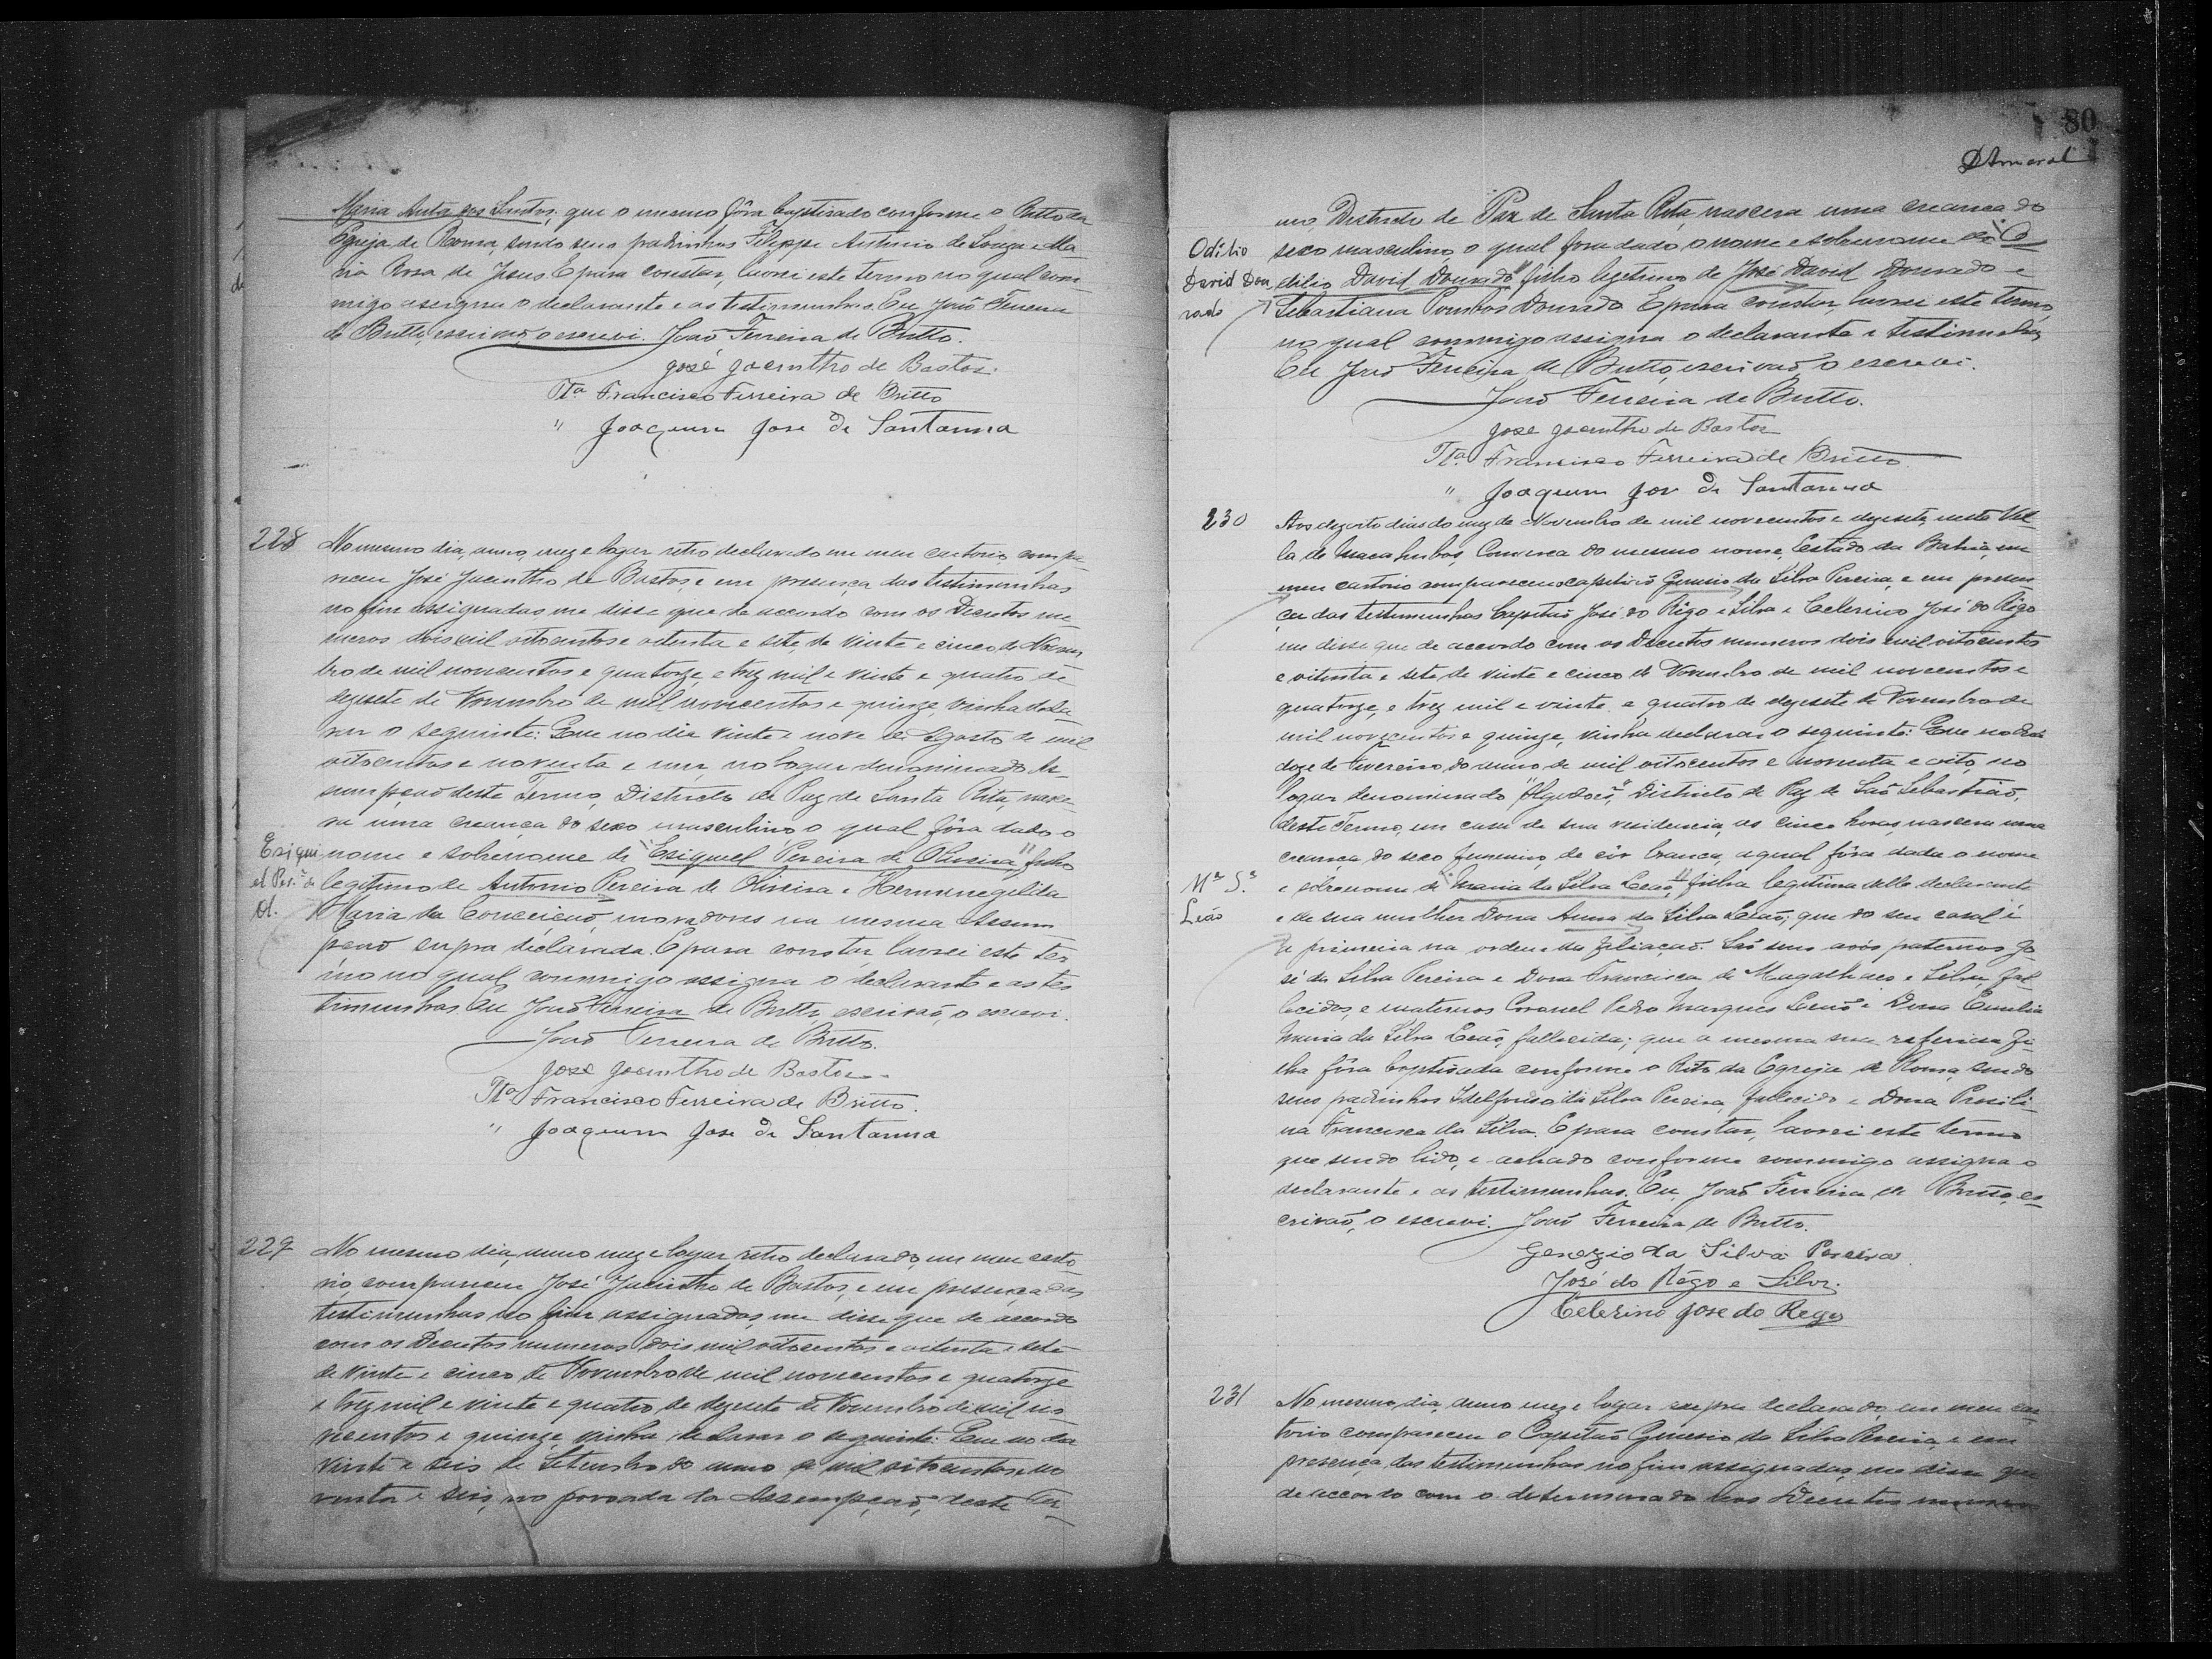 Maria Anta dos Santos; que o mesmo fôra baptisado conforme o Ritto da
Egreja de Roma, sendo seus padrinhos Filippe Antonio de Souza e Ma-
ria Rosa de Jesus. E para constar, lavrei este termo no qual com-
migo assigna o declarante e as testimunhas. Eu, João Ferreira
de Britto, escrivão, o escrevi. João Ferreira de Britto.
José Jacinttho de Bastos.
Tta Francisco Ferreira de Britto
" Joaquim Jose de Santanna
228 No mesmo dia, anno, mez e logar retro declarado em meu cartorio, compa-
receu José Jacintho de Bastos, e em presença das testimunhas
no fim assignadas me disse que de accordo com os Decretos nu-
meros dois mil oitocentos e oitenta e sete, de vinte e cinco de Novem-
bro de mil novecentos e quatorze, e trez mil e vinte e quatro de
dezesete de Novembro de mil novecentos e quinze, vinha decla-
rar o seguinte: Que no dia vinte e nove de Agosto de mil
oitocentos e noventa e um, no logar denominado As-
sumpção deste Termo, Districto de Paz de Santa Rita, nasce-
ra uma creança do sexo masculino o qual fôra dado o
Eziqui
nome e sobrenome de "Esiquiel Pereira de Oliveira", filho
el Per.ª de
legitimo de Antonio Pereira de Oliveira e Hermenegilda
Ol.
Maria da Conceição, moradores na mesma Assum-
pção supra declarada. E para constar, lavrei este ter-
mo no qual commigo assigna o declarante e as tes-
timunhas. Eu João Ferreira de Britto, escrivão, o escrevi.
João Ferreira de Britto.
José Jacinttho de Bastos
Tta Francisco Ferreira de Britto.
" Joaquim Jose de Santanna
229 No mesmo dia, anno mez e logar retro declarado, em meu carto-
rio, compareceu José Jacintho de Bastos, e em presença das
testimunhas no fim assignadas, me disse que de accordo
com os Decretos numeros dois mil oitocentos e oitenta e sete
de vinte e cinco de Novembro de mil novecentos e quatorze
e trez mil e vinte e quatro de dezesete de Novembro de mil no-
vecentos e quinze, vinha declarar o seguinte: Que no dia
vinte e seis de Setembro do anno de mil oitocentos e no-
venta e seis, no povoado da Assumpção, deste Ter-
80
DAmaral
mo, Districto de Paz de Santa Rita, nascera uma creança do
Odilio
sexo masculino, o qual fora dado o nome e sobrenome de "O-
David Dou
dilio David Dourado" filho legitimo de José David Dourado e
rado
Sebastiana Pombos Dourado. E para constar, lavrei este termo,
no qual commigo assigna o declarante e testimunhas
Eu João Ferreira de Britto, escrivão, o escrevi.
João Ferreira de Britto.
José Jacinttho de Bastos
Tta. Francisco Ferreira de Britto.
" Joaquim Jose de Santanna
230 Aos dezoito dias do mez de Novembro de mil novecentos e dezesete, nesta Vil-
la de Macahubas, Comarca do mesmo nome, Estado da Bahia, em
meu cartorio compareceu o capitão Genesio da Silva Pereira, e em presen-
ça das testimunhas Capitão José do Rêgo e Silva e Celerino José do Rêgo
me disse que de accordo com os Decretos numeros dois mil oitocentos
e oitenta e sete de vinte e cinco de Novembro de mil novecentos e
quatorze, e trez mil e vinte e quatro de dezesete de Novembro de
mil novecentos e quinze, vinha declarar o seguinte: Que no dia
doze de Fevereiro do anno de mil oitocentos e noventa e oito, no
logar denominado "Algodões", Districto de Paz de São Sebastião,
deste Termo, em casa de sua residencia, as cinco horas, nascera uma
creança do sexo femenino, de côr branca, a qual fôra dada o nome
Mª S.ª
e sobrenome de "Maria da Silva Leão", filha legitima delle declarante
Leão
e de sua mulher Dona Anna da Silva Leão; que do seu casal é
a primeira na ordem da filiação. São seus avós paternos Jo-
sé da Silva Pereira e Dona Francisca de Magalhães e Silva, fal-
lecidos, e maternos Coronel Pedro Marques Leão e Dona Emilia
Maria da Silva Leão, fallecida; que a mesma sua referida fi-
lha fôra baptisada conforme o Rito da Egreja de Roma, sendo
seus padrinhos Idelfonso da Silva Pereira, fallecido e Dona
na Francisca da Silva. E para constar, lavrei este termo
que sendo lido, e achado conforme commigo assigna o
declarante e as testimunhas. Eu, João Ferreira de Britto, es-
crivão, o escrevi. João Ferreira de Britto.
Genezio da Silva Pereira.
José do Rêgo e Silva.
Celerino Jose do Rego
231 No mesmo, dia, anno mez e logar supra declarado, em meu car-
torio compareceu o Capitão Genesio da Silva Pereira, e em
presença das testimunhas no fim assignadas, me disse que
de accordo com o determinado nos Decretos numeros